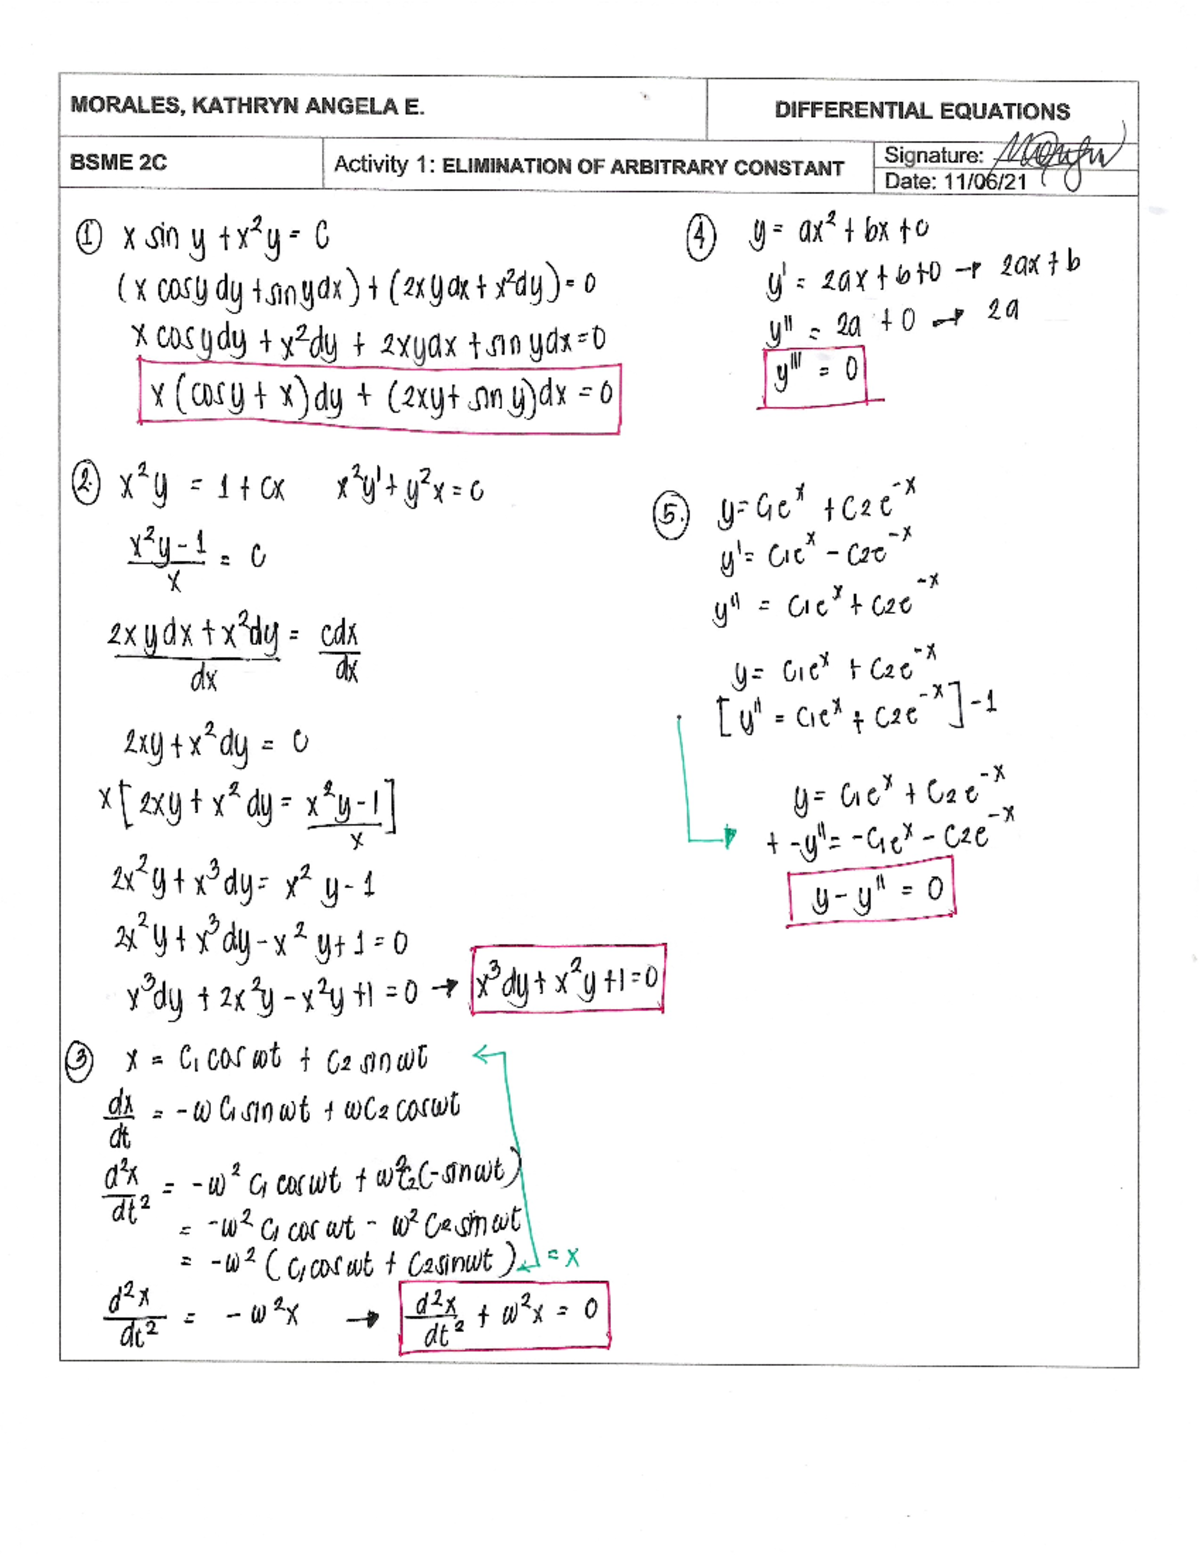 MORALES, KATHRYN ANGELA E.
DIFFERENTIAL EQUATIONS
BSME 2C
Activity 1: ELIMINATION OF ARBITRARY CONSTANT
Signature:
Date: 11/06/21
① x sin y + x²y = C
(x cosy dy + sin y dx) + (2xy dx + x²dy) = 0
x cosy dy + x²dy + 2xydx + sin ydx = 0
x (cosy + x) dy + (2xy + sin y)dx = 0
② x²y = 1 + cx    x²y' + y²x = c
(x²y - 1)/x = C
(2xydx + x²dy)/dx = cdx/dx
2xy + x²dy = C
x [2xy + x²dy = (x²y - 1)/x]
2x²y + x³dy = x²y - 1
2x²y + x³dy - x²y + 1 = 0
x³dy + 2x²y - x²y + 1 = 0 → x³dy + x²y + 1 = 0
③ x = C₁ cos ωt + C₂ sin ωt
dx/dt = -ω C₁ sin ωt + ωC₂ cos ωt
d²x/dt² = -ω² C₁ cos ωt + ω²C₂(-sin ωt)
= -ω² C₁ cos ωt - ω² C₂ sin ωt
= -ω² (C₁ cos ωt + C₂ sin ωt) = x
d²x/dt² = -ω²x → d²x/dt² + ω²x = 0
④ y = ax² + bx + c
y' = 2ax + b + 0 → 2ax + b
y'' = 2a + 0 → 2a
y''' = 0
⑤. y = C₁eˣ + C₂e⁻ˣ
y' = C₁eˣ - C₂e⁻ˣ
y'' = C₁eˣ + C₂e⁻ˣ
y = C₁eˣ + C₂e⁻ˣ
[y'' = C₁eˣ + C₂e⁻ˣ] -1
y = C₁eˣ + C₂e⁻ˣ
+ -y'' = -C₁eˣ - C₂e⁻ˣ
y - y'' = 0